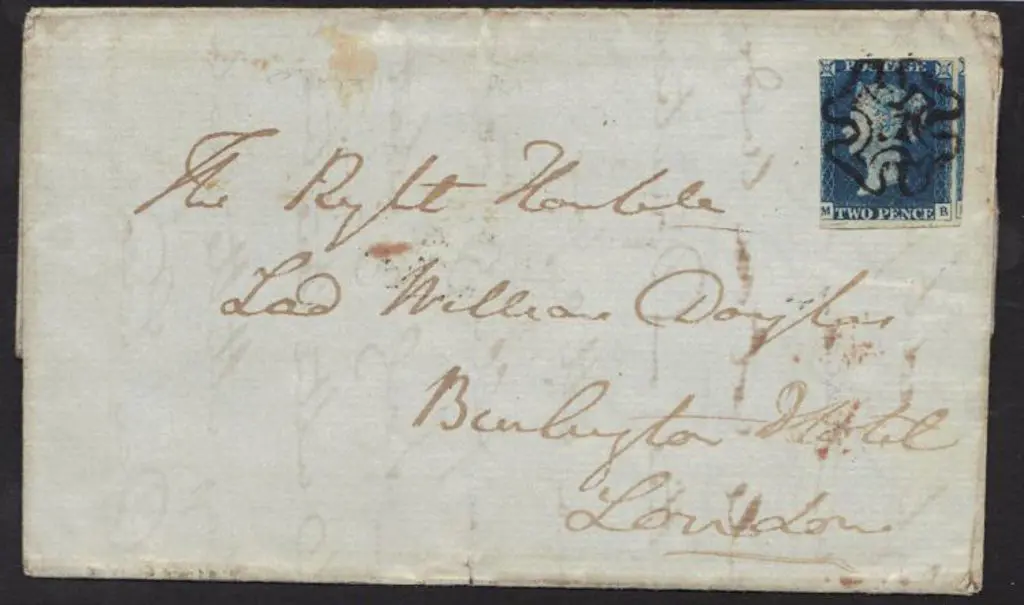 POSTAGE
M TWO PENCE B
The Right Honble
Lad William Douglas
Burlington Hotel
London